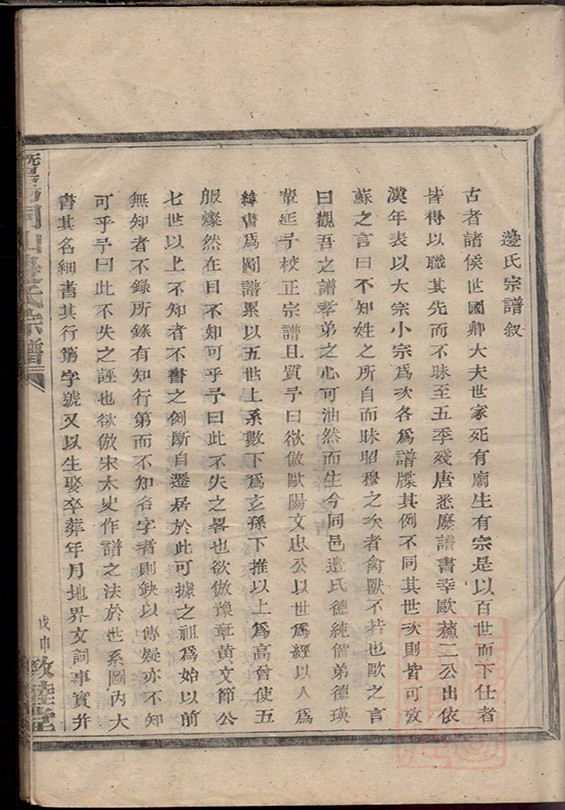 邊氏宗譜叙
古者諸侯世國卿大夫世家死有廟生有宗是以百世而下仕者
皆得以職其先而不昧至五季殘唐悉廢譜書幸歐蘇二公出依
漢年表以大宗小宗爲次各爲譜牒其例不同其世次則皆可攷
蘇之言曰不知姓之所自而昧昭穆之次者禽獸不若也歐之言
曰觀吾之譜孝弟之心可油然而生今同邑邊氏德純偕弟德瑛
輩延予校正宗譜且質予曰欲倣歐陽文忠公以世爲經以人爲
緯書爲圖譜累以五世上系數下爲玄孫下推以上爲高曾使五
服燦然在目不知可乎予曰此不失之畧也欲倣豫章黄文節公
七世以上不知者不書之例斷自遷居於此可據之祖爲始以前
無知者不錄所錄有知行第而不知名字者則缺以傳疑亦不知
可乎予曰此不失之誣也欲倣宋太史作譜之法於世系圖内大
書其名細書其行第字號又以生娶卒葬年月地界文詞事實幷
暨陽同山邊氏宗譜
戊申 敦睦堂